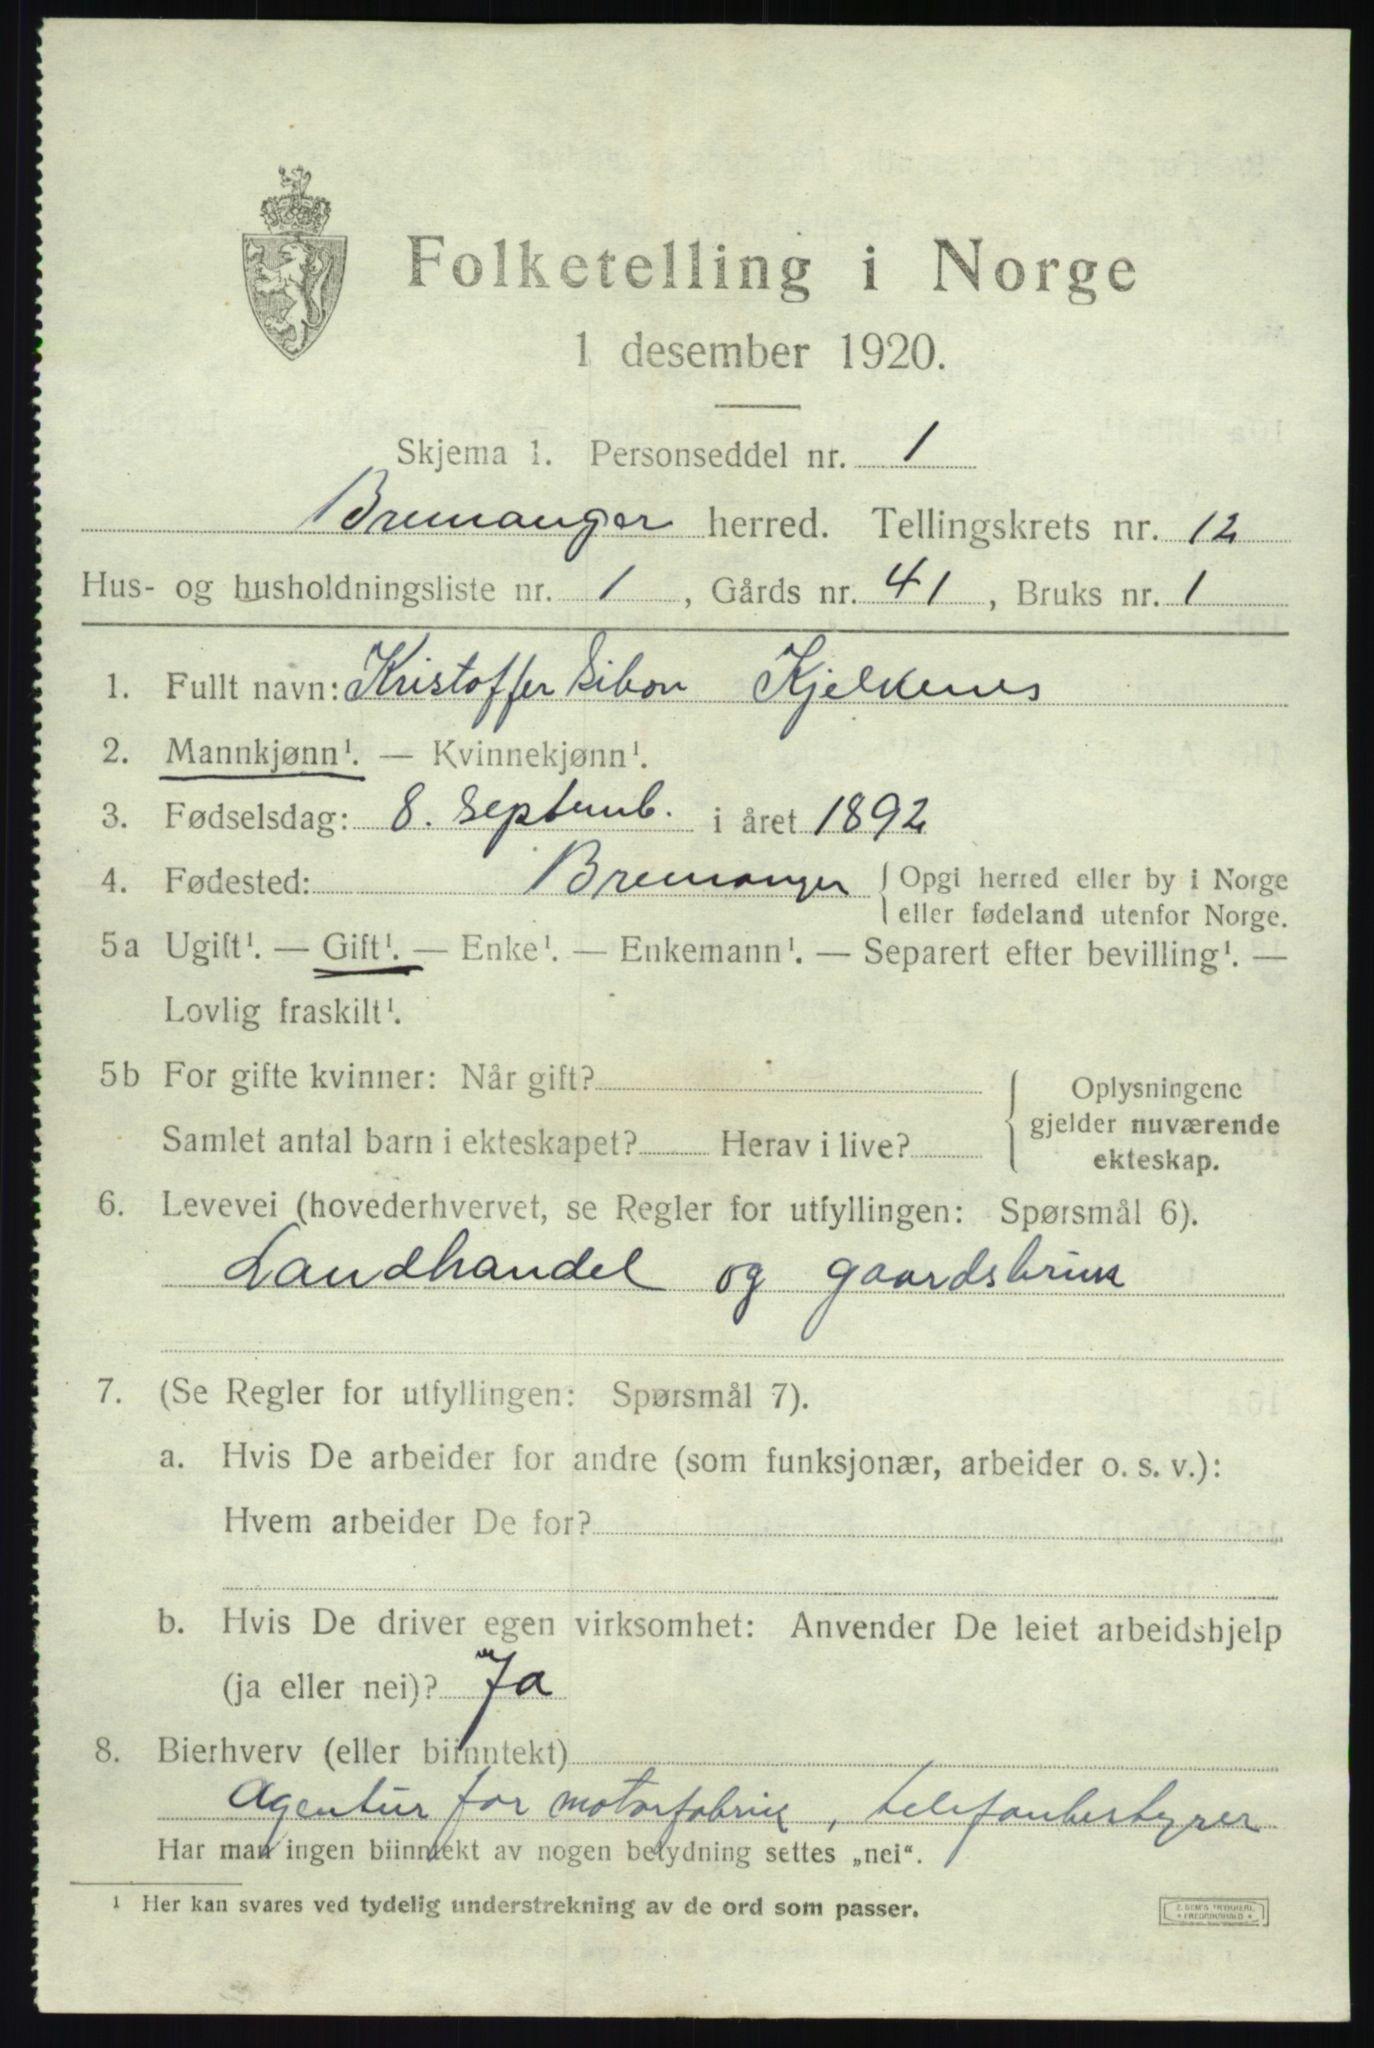 Folketelling i Norge
1 desember 1920.
Skjema 1. Personseddel nr. 1
Bremanger herred. Tellingskrets nr. 12
Hus- og husholdningsliste nr. 1, Gårds nr. 41, Bruks nr. 1
1. Fullt navn: Kristoffer Kjelkenes
2. Mannkjønn¹. — Kvinnekjønn¹.
3. Fødselsdag: 8. Septemb. i året 1892
4. Fødested: Bremanger { Opgi herred eller by i Norge
eller fødeland utenfor Norge.
5a Ugift¹. — Gift¹. — Enke¹. — Enkemann¹. — Separert efter bevilling¹. —
Lovlig fraskilt¹.
5b For gifte kvinner: Når gift?
Samlet antal barn i ekteskapet? Herav i live?
Oplysningene
gjelder nuværende
ekteskap.
6. Levevei (hovederhvervet, se Regler for utfyllingen: Spørsmål 6).
Landhandel og gaardsbruk
7. (Se Regler for utfyllingen: Spørsmål 7).
a. Hvis De arbeider for andre (som funksjonær, arbeider o. s. v.):
Hvem arbeider De for?
b. Hvis De driver egen virksomhet: Anvender De leiet arbeidshjelp
(ja eller nei)? Ja
8. Bierhverv (eller biinntekt)
Agentur for motorfabrik, telefonbestyrer
Har man ingen biinntekt av nogen betydning settes „nei“.
¹ Her kan svares ved tydelig understrekning av de ord som passer.